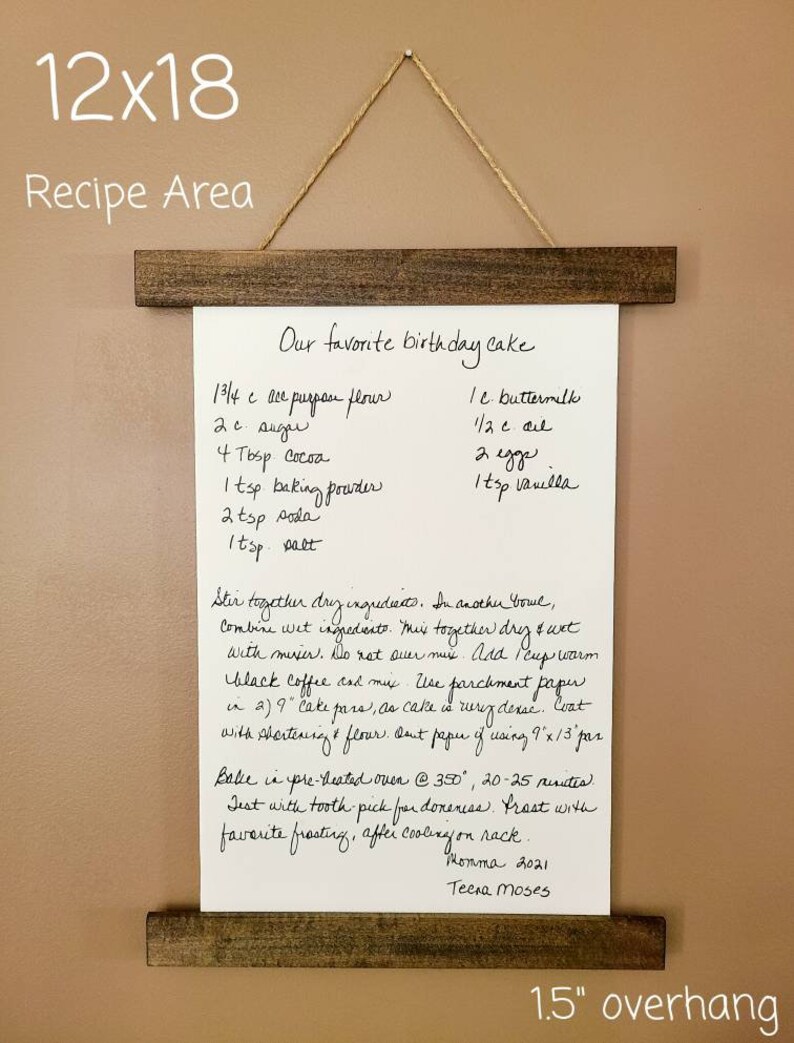 12x18
Recipe Area
Our favorite birthday cake
1 3/4 c all purpose flour
2 c. sugar
4 Tbsp. cocoa
1 tsp. baking powder
2 tsp soda
1 tsp. salt
1 c. buttermilk
1/2 c. oil
2 eggs
1 tsp vanilla
Stir together dry ingredients. In another bowl,
combine wet ingredients. Mix together dry & wet
with mixer. Do not over mix. Add 1 cup warm
black coffee and mix. Use parchment paper
in 2) 9" cake pans, as cake is very dense. Coat
with shortening & flour. Omit paper if using 9"x13" pan
Bake in pre-heated oven @ 350°, 20-25 minutes.
Test with tooth-pick for doneness. Frost with
favorite frosting, after cooling on rack.
Momma 2021
Teena Moses
1.5" overhang